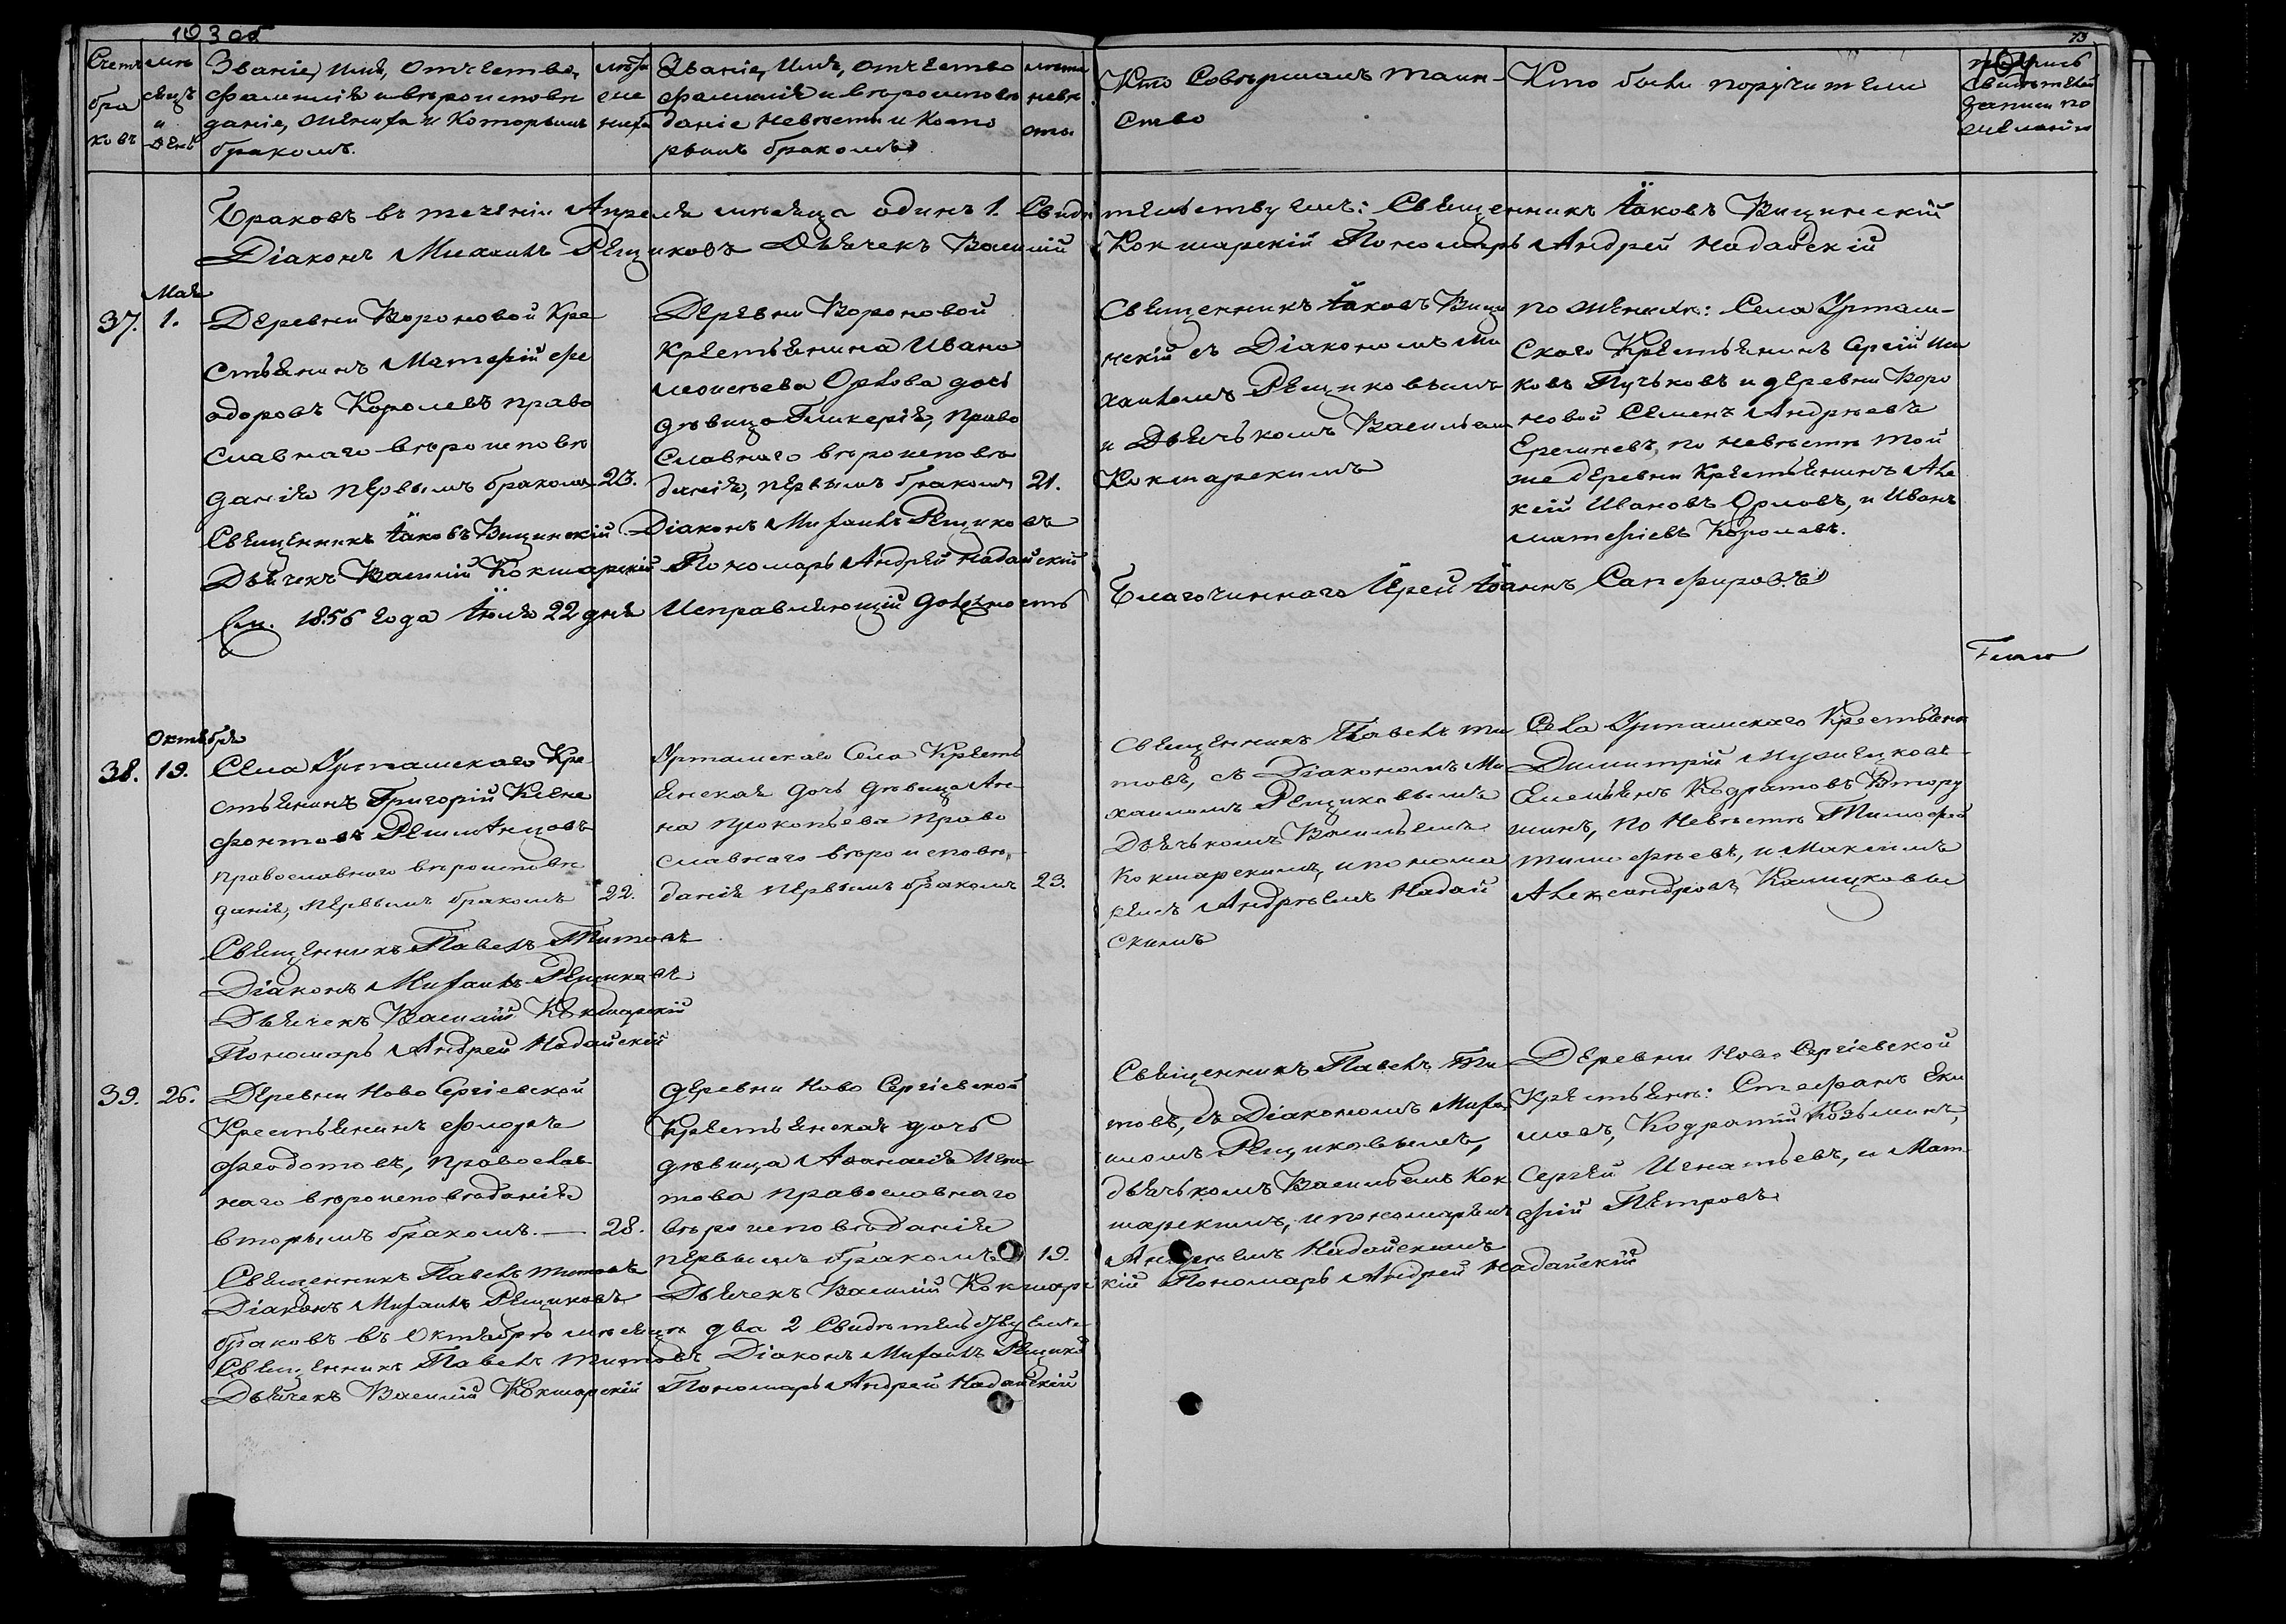 103 об
73
Счетъ
бра
ковъ
мѣ
сяцъ
и
день
Званіе, имя, отчество,
фамилія и вѣроисповѣ
даніе, жениха и которымъ
бракомъ.
лѣта
же
ниха
Званіе, имя, отчество
фамилія и вѣроисповѣ
даніе невѣсты и кото
рымъ бракомъ
лѣта
невѣ
сты
Кто совѣршалъ таин-
ство
Кто были поручители
свидѣтелей
записи по
желанію
Браковъ въ теченіи Апреля мѣсяца одинъ 1. Свидѣтельствуемъ: Священникъ Іаковъ Вицинскій
Діаконъ Михаилъ Рещиковъ Дьячекъ Василій Кокшарскій Пономарь Андрей Надайскій
Мая
37. 1.
Деревни Вороновой Кре
стьянинъ Матфій Фе
одоровъ Королевъ право
славнаго вѣроисповѣ
данія первымъ бракомъ 23.
Деревни Вороновой
Крестьянина Ивана
Моисѣева Орлова дочь
дѣвица Гликерія, право
славнаго вѣроисповѣ
данія, первымъ бракомъ 21.
Священникъ Іаковъ Вици
нскій съ Діакономъ Ми
хаиломъ Рещиковымъ
и Дьячькомъ Васильемъ
Кокшарскимъ
по женихѣ: Села Уртам-
скаго Крестьянинъ Сергій
Пучьковъ и деревни Воро
новой Семенъ Андрѣевъ
Еремѣевъ, по невѣстѣ той
же деревни Крестьянинъ Але
кѣй Ивановъ Орловъ, и Иванъ
Матфіевъ Королевъ.
Священникъ Іаковъ Вицинскій Діаконъ Михаилъ Рещиковъ
Дьячекъ Василій Кокшарскій Пономарь Андрей Надайскій
1856 года Іюля 22 дня Исправляющій должность Благочиннаго Іерей Іоаннъ Сапфировъ
Октября
38. 19.
Села Уртамскаго Кре
стьянинъ Григорій Ксено
фонтовъ
православнаго вѣроисповѣ
данія, первымъ бракомъ 22.
Уртамскаго Села Кресть
янская дочь дѣвица Ан-
на Прокопьева право
славнаго вѣроисповѣ-
данія первымъ бракомъ 23.
Священникъ Павелъ Ти
товъ, съ Діакономъ Ми
хаиломъ Рещиковымъ
Дьячькомъ Васильемъ
Кокшарскимъ, и понома
ремъ Андрѣемъ Надай
скимъ
Села Уртамскаго Крестьяне
Димитрій
Емельянъ Кодратовъ Втору
шинъ, по невѣстѣ Тимофей
Тимофѣевъ, и Максимъ
Александровъ
Священникъ Павелъ Титовъ
Діаконъ Михаилъ Рещиковъ
Дьячекъ Василій Кокшарскій
Пономарь Андрей Надайскій
39. 26.
Деревни Ново Сергіевской
Крестьянинъ Флоръ
Феодотовъ, православ
наго вѣроисповѣданія
вторымъ бракомъ. — 28.
деревни Ново Сергіевской
Крестьянская дочь
дѣвица Игна
това православнаго
вѣроисповѣданія
первымъ бракомъ 19.
Священникъ Павелъ Ти
товъ, съ Діакономъ Миха
иломъ Рещиковымъ,
дьячькомъ Васильемъ Кок
шарскимъ, и пономаремъ
Андрѣемъ Надайскимъ
Деревни Ново Сергіевской
Крестьяне: Стефанъ Еки
мовъ, Кодратій Козьминъ,
Сергѣй Игнатьевъ, и Мат
фій Петровъ
Священникъ Павелъ Титовъ
Діаконъ Михаилъ Рещиковъ Дьячекъ Василій Кокшарскій Пономарь Андрей Надайскій
браковъ въ Октябрѣ мѣсяцѣ два 2 Свидѣтельствуемъ
Священникъ Павелъ Титовъ Діаконъ Михаилъ Рещиков
Дьячекъ Василій Кокшарскій Пономарь Андрей Надайскій